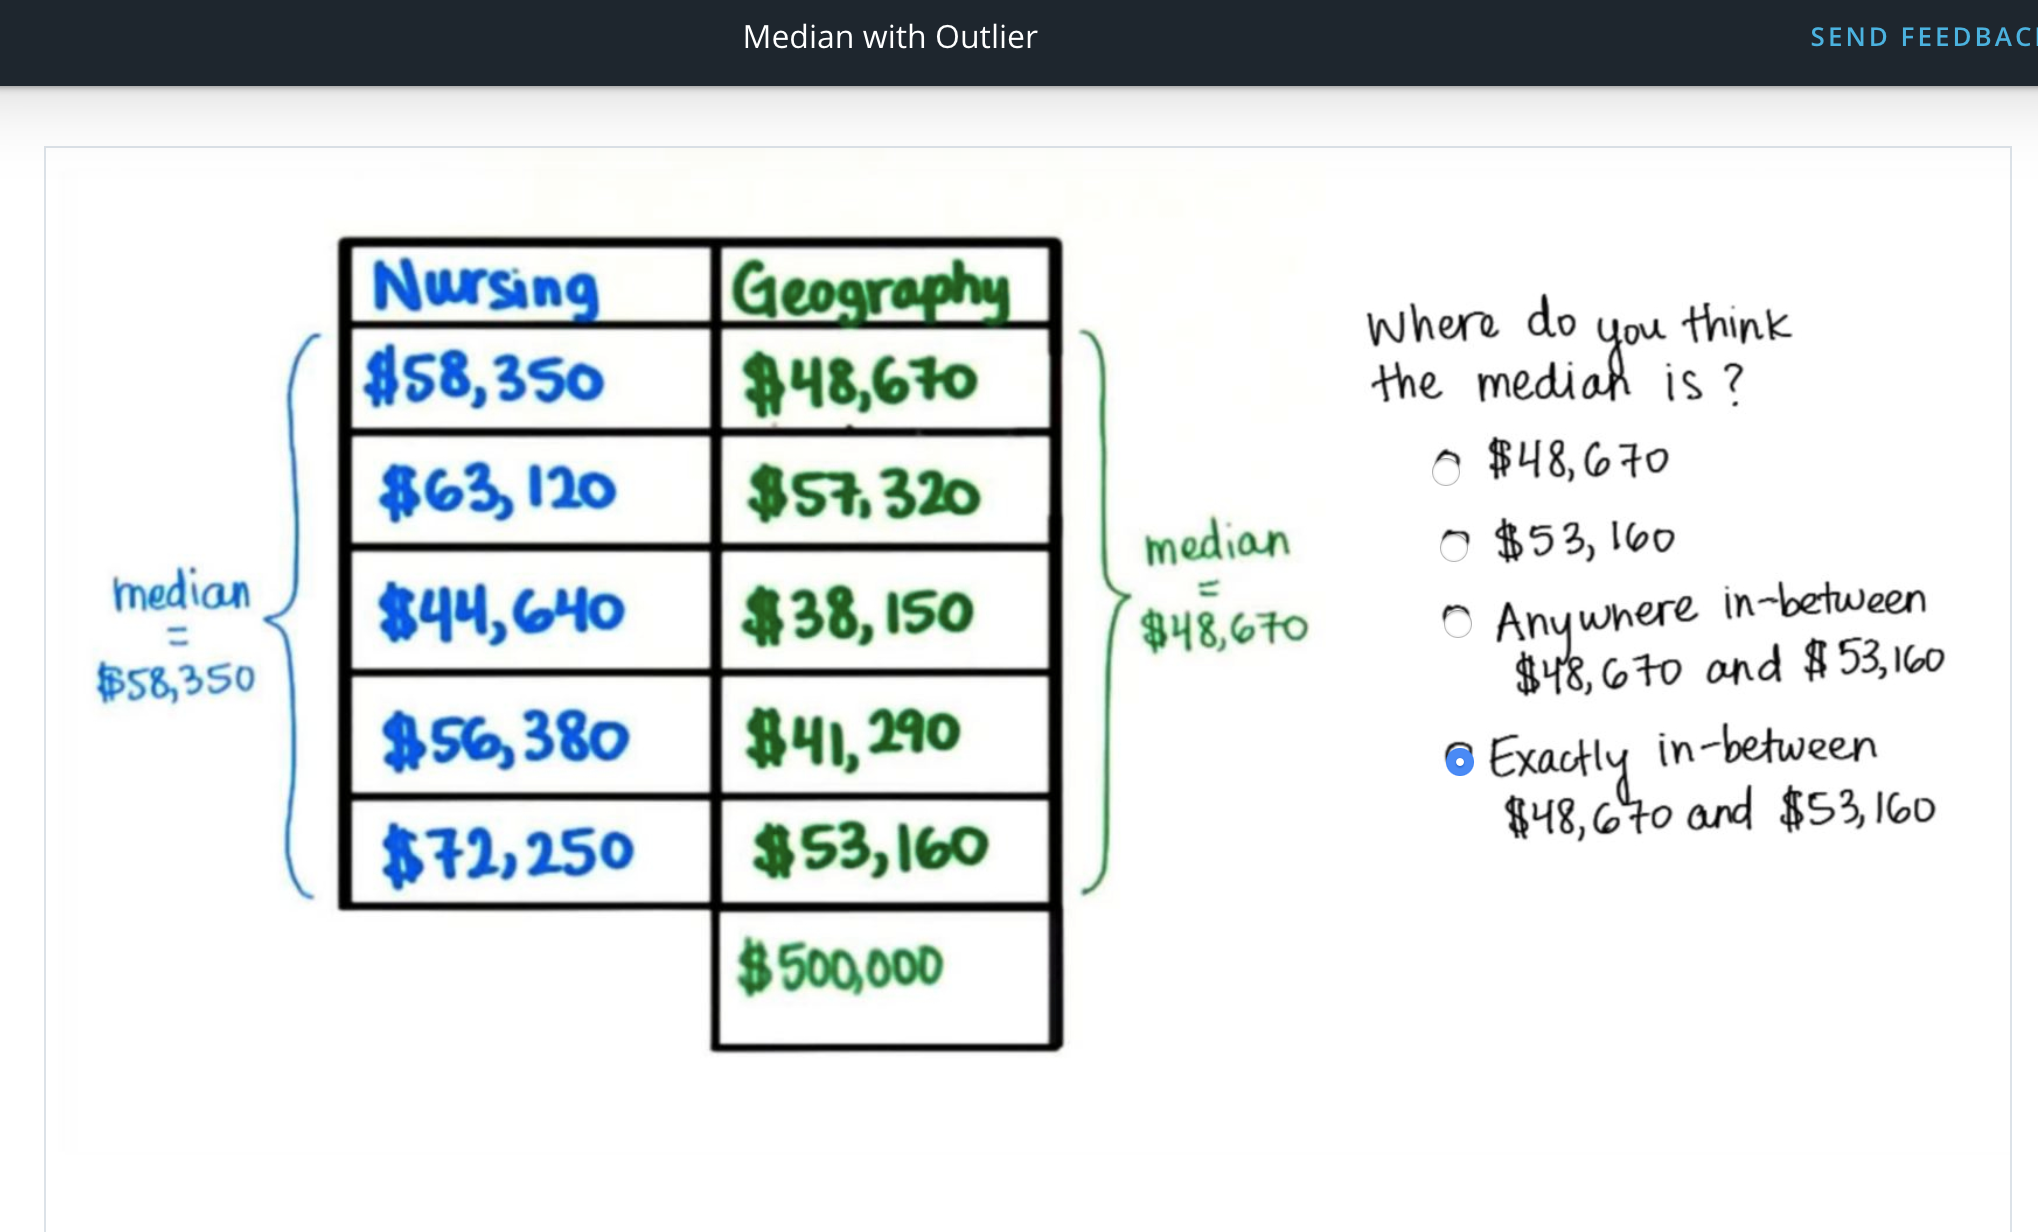 Median with Outlier
SEND FEEDBAC
Nursing Geography
$58,350 $48,670
$63,120 $57,320
$44,640 $38,150
$56,380 $41,290
$72,250 $53,160
$500,000
median
=
$58,350
median
=
$48,670
Where do you think
the median is?
$48,670
$53,160
Anywhere in-between
$48,670 and $53,160
Exactly in-between
$48,670 and $53,160